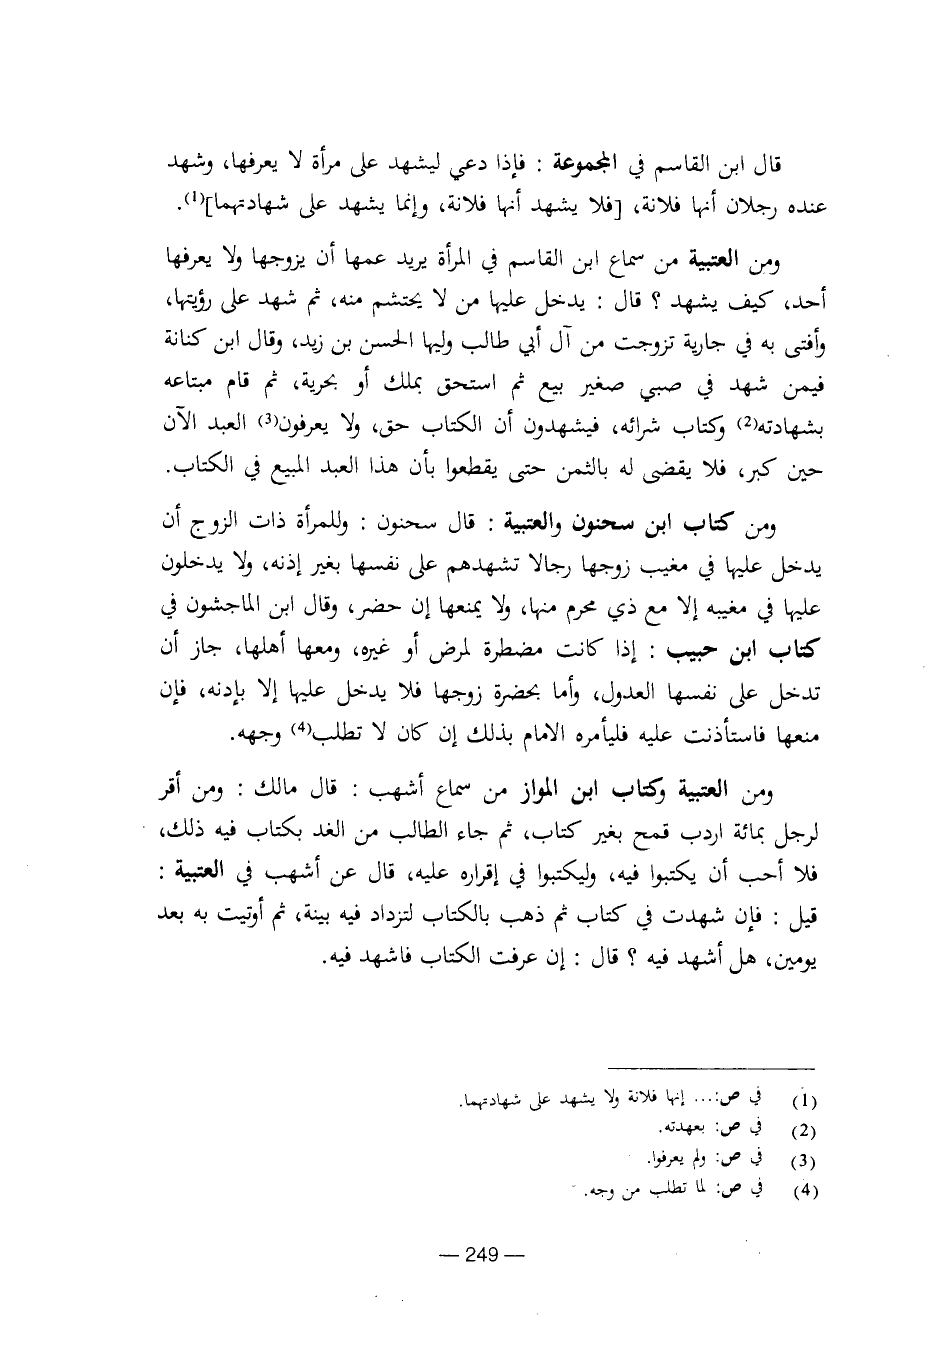 قال ابن القاسم في المجموعة : فإذا دعي ليشهد على مرأة لا يعرفها، وشهد
عنده رجلان أنها فلانة، [فلا يشهد أنها فلانة، وإنما يشهد على شهادتهما](1).
ومن العتبية من سماع ابن القاسم في المرأة يريد عمها أن يزوجها ولا يعرفها
أحد، كيف يشهد ؟ قال : يدخل عليها من لا يحتشم منه، ثم شهد على رؤيتها،
وأفتى به في جارية تزوجت من آل أبي طالب وليها الحسن بن زيد، وقال ابن كنانة
فيمن شهد في صبي صغير بيع ثم استحق بملك أو بحرية، ثم قام مبتاعه
بشهادته(2) وكتاب شرائه، فيشهدون أن الكتاب حق، ولا يعرفون(3) العبد الآن
حين كبر، فلا يقضى له بالثمن حتى يقطعوا بأن هذا العبد المبيع في الكتاب.
ومن كتاب ابن سحنون والعتبية : قال سحنون : وللمرأة ذات الزوج أن
يدخل عليها في مغيب زوجها رجالا تشهدهم على نفسها بغير إذنه، ولا يدخلون
عليها في مغيبه إلا مع ذي محرم منها، ولا يمنعها إن حضر، وقال ابن الماجشون في
كتاب ابن حبيب : إذا كانت مضطرة لمرض أو غيره، ومعها أهلها، جاز أن
تدخل على نفسها العدول، وأما بحضرة زوجها فلا يدخل عليها إلا بإدنه، فإن
منعها فاستأذنت عليه فليأمره الامام بذلك إن كان لا تطلب(4) وجهه.
ومن العتبية وكتاب ابن المواز من سماع أشهب : قال مالك : ومن أقر
لرجل بمائة اردب قمح بغير كتاب، ثم جاء الطالب من الغد بكتاب فيه ذلك،
فلا أحب أن يكتبوا فيه، وليكتبوا في إقراره عليه، قال عن أشهب في العتبية :
قيل : فإن شهدت في كتاب ثم ذهب بالكتاب لتزداد فيه بينة، ثم أوتيت به بعد
يومين، هل أشهد فيه ؟ قال : إن عرفت الكتاب فاشهد فيه.
(1) في ص:... إنها فلانة ولا يشهد على شهادتهما.
(2) في ص: بعهدته.
(3) في ص: ولم يعرفوا.
(4) في ص: لما تطلب من وجه.
— 249 —